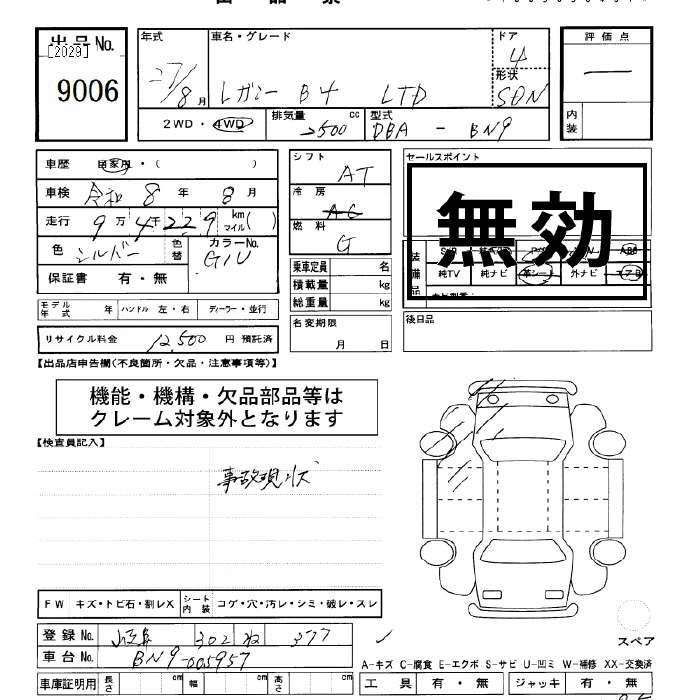 出品No.
[2029]
9006
年式 27/8月
車名・グレード レガシー B4 LTD
ドア 4
形状 SDN
2WD・4WD
排気量 2500 cc
型式 DBA - BN9
評価点 —
内装
車歴 自家用・( )
車検 令和 8年 8月
走行 9万4千229 km マイル( )
色 シルバー
色替
カラーNo. G1U
保証書 有・無
モデル年式 年
ハンドル 左・右
ディーラー・並行
リサイクル料金 12,500 円 預託済
シフト AT
冷房 AC
燃料 G
乗車定員 名
積載量 kg
総重量 kg
名変期限 月 日
セールスポイント
無効
装備品
純TV 純ナビ 革シート 外ナビ エアB
後日品
【出品店申告欄(不良箇所・欠品・注意事項等)】
機能・機構・欠品部品等は
クレーム対象外となります
【検査員記入】
事故現状
FW キズ・トビ石・割レX
シート内装 コゲ・穴・汚レ・シミ・破レ・スレ
登録No. 岐阜 302 ね 377
車台No. BN9-005957
車庫証明用 長さ cm 幅 cm 高さ cm
スペア
A-キズ C-腐食 E-エクボ S-サビ U-凹ミ W-補修 XX-交換済
工具 有・無 ジャッキ 有・無